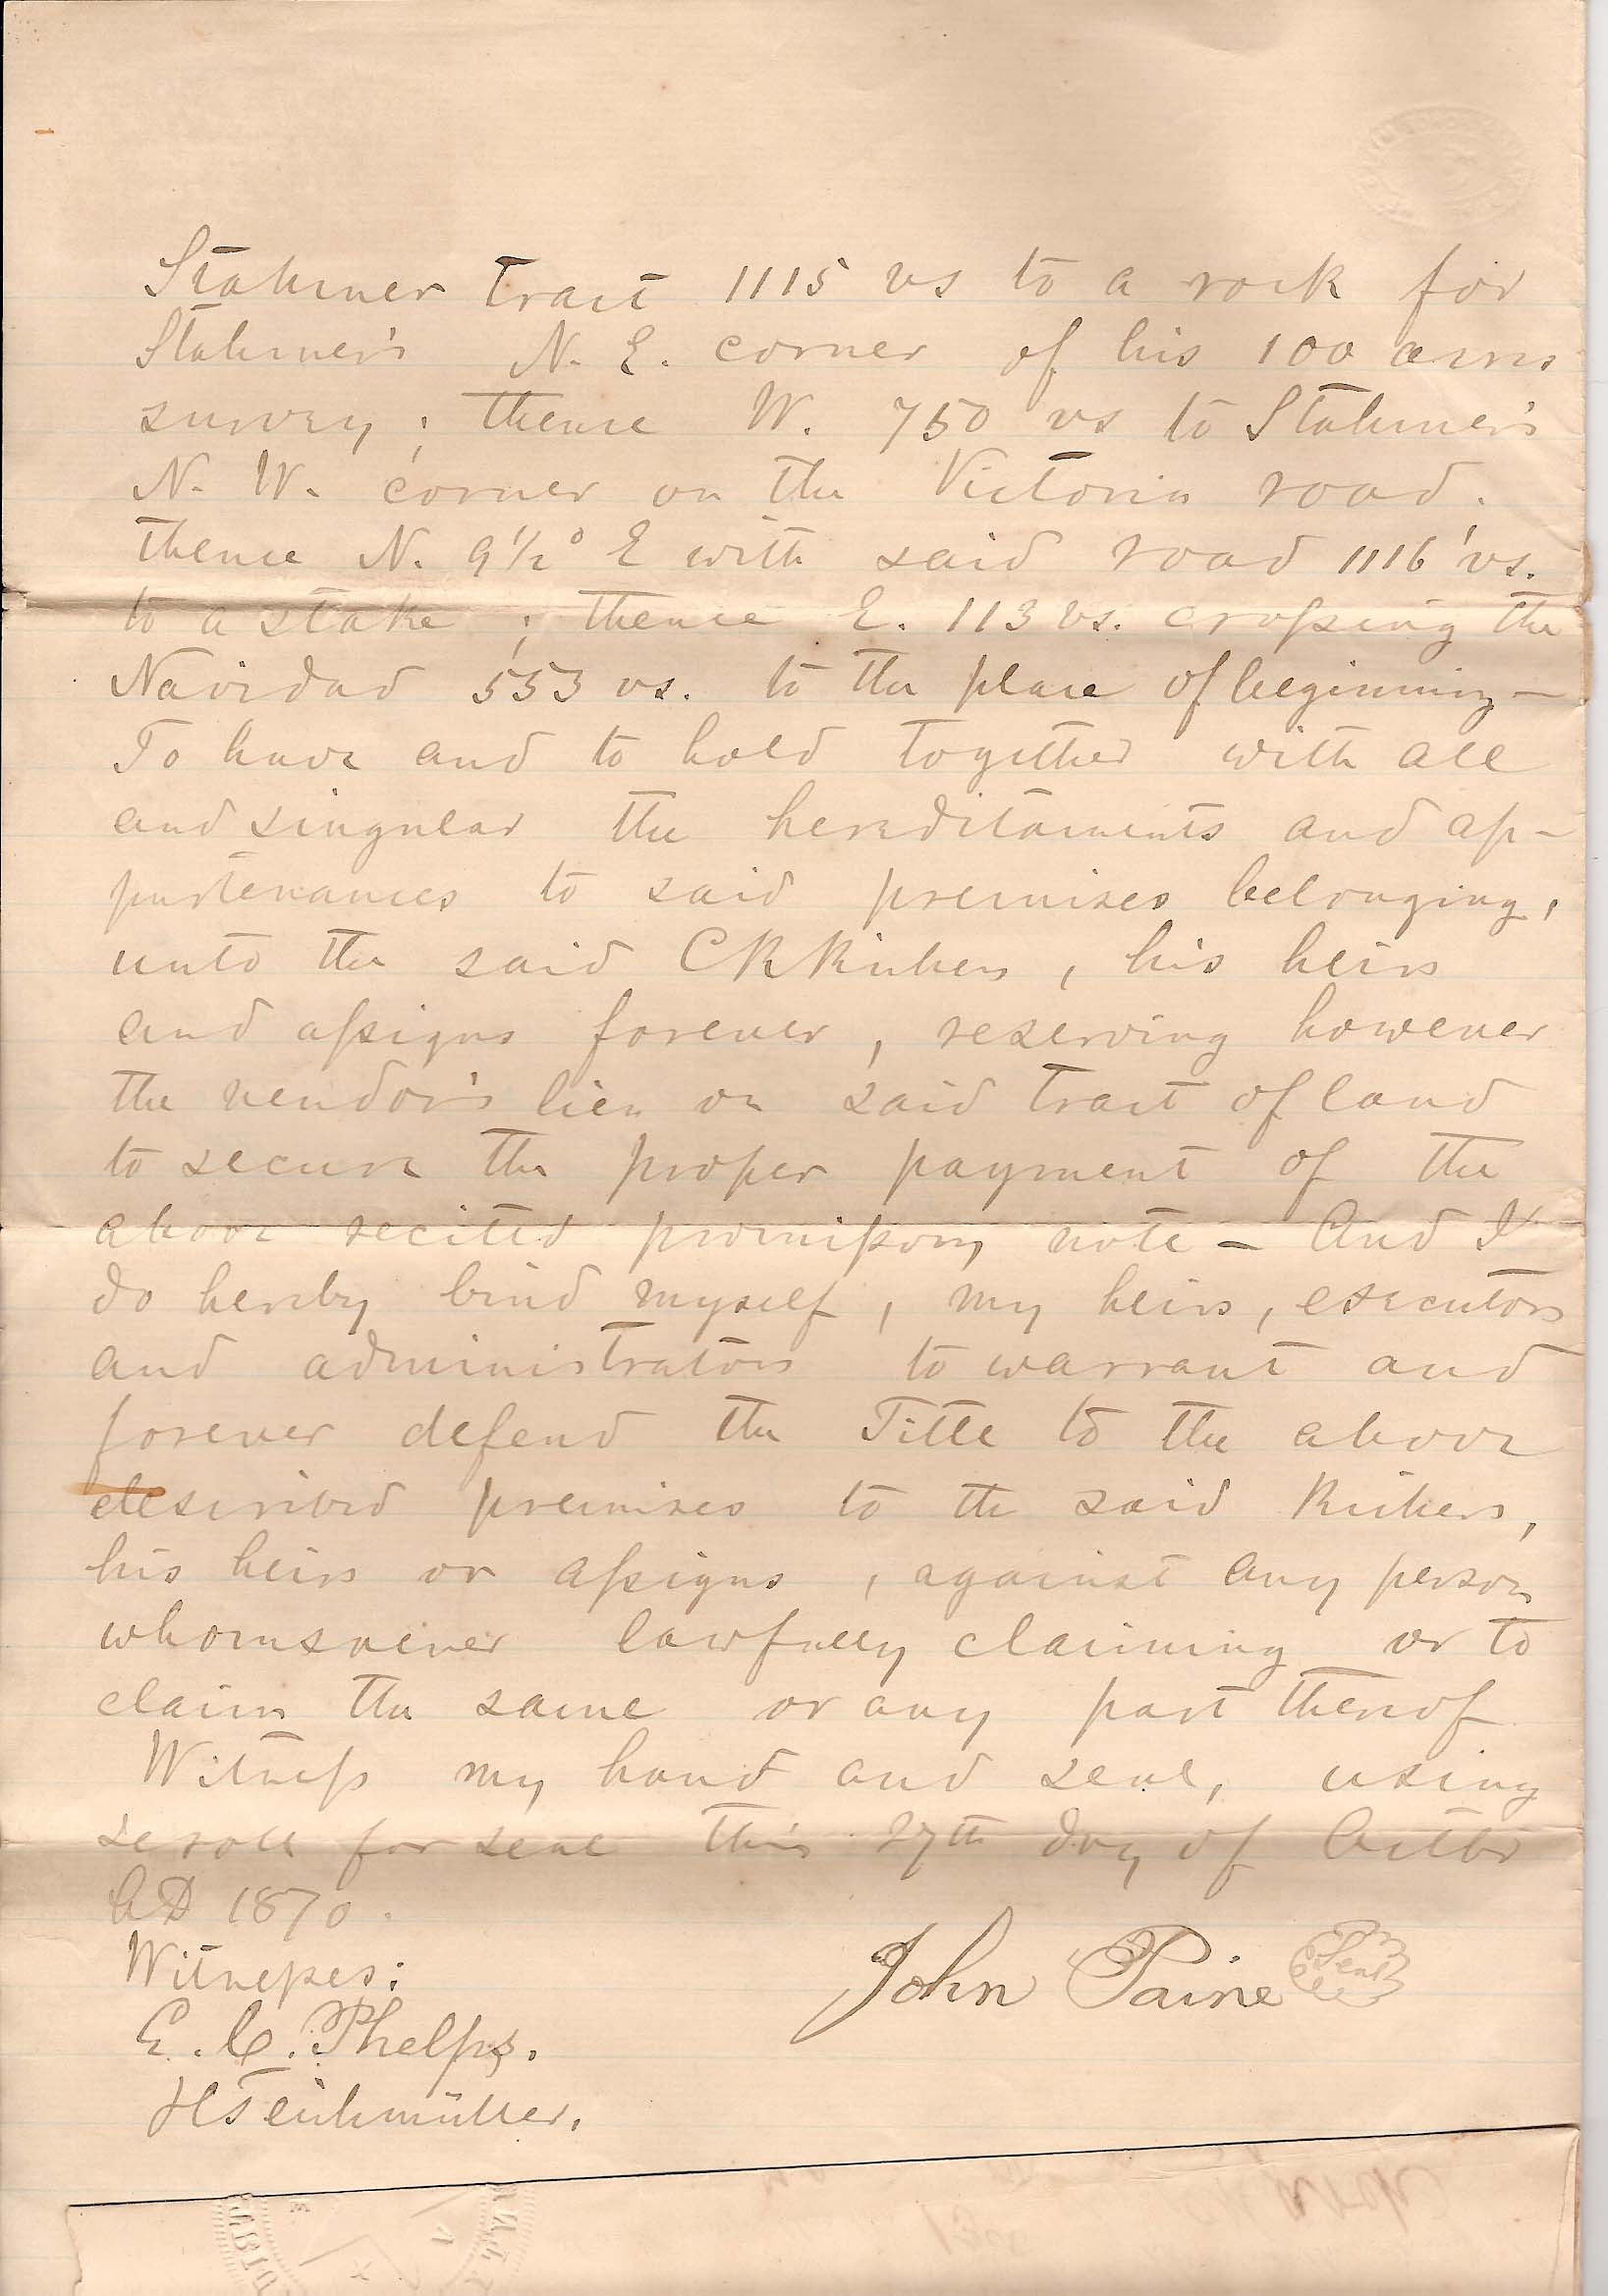 Stahmer Tract 1115 vs to a rock for
Stahmer's N. E. corner of his 100 acres
survey; thence W. 750 vs to Stahmer's
N. W. corner on the Victoria road.
thence N. 9½° E with said road 1116 vs.
to a stake; thence E. 113 vs. crossing the
Navidad 553 vs. to the place of beginning —
To have and to hold together with all
and singular the hereditaments and ap-
purtenances to said premises belonging,
unto the said C R , his heirs
and assigns forever, reserving however
the vendor's lien on said tract of land
to secure the proper payment of the
above recited promissory note — And I
do hereby bind myself, my heirs, executors
and administrators to warrant and
forever defend the Title to the above
described premises to the said
his heirs or assigns, against any person
whomsoever lawfully claiming or to
claim the same or any part thereof
Witness my hand and seal, using
scroll for seal this 27th day of Octbr
AD 1870.
Witnesses:
John Paine Seal
E. C. Phelps.
H Teichmüller.